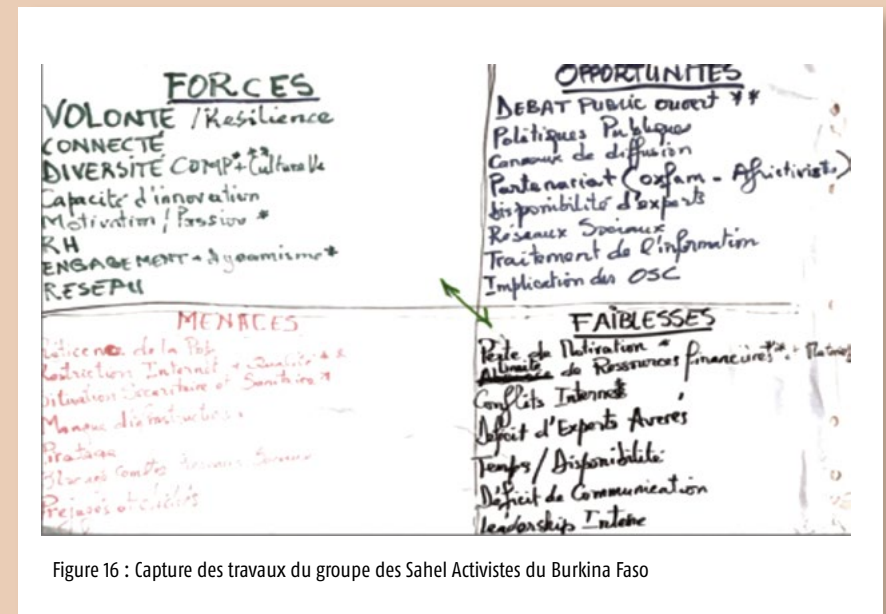 FORCES
VOLONTÉ / Résilience
CONNECTÉ
DIVERSITÉ COMP + Culturelle
Capacité d'innovation
Motivation / Passion *
RH
ENGAGEMENT + dynamisme *
RESEAU
OPPORTUNITES
DEBAT PUBLIC ouvert **
Politiques Publiques
Canaux de diffusion
Partenariat (oxfam - Africtivistes)
disponibilité d'experts
Réseaux Sociaux
Traitement de l'information
Implication des OSC
MENACES
Réticence de la
Restriction Internet + Qualité **
Situation Sécuritaire et Sanitaire *
Manque
Piratage
Comptes
Préjugés et clichés
FAIBLESSES
Perte de Motivation *
Limite de Ressources financières **
Conflits Internes
Déficit d'Experts Averés
Temps / Disponibilité
Déficit de Communication
leadership Interne
Figure 16 : Capture des travaux du groupe des Sahel Activistes du Burkina Faso